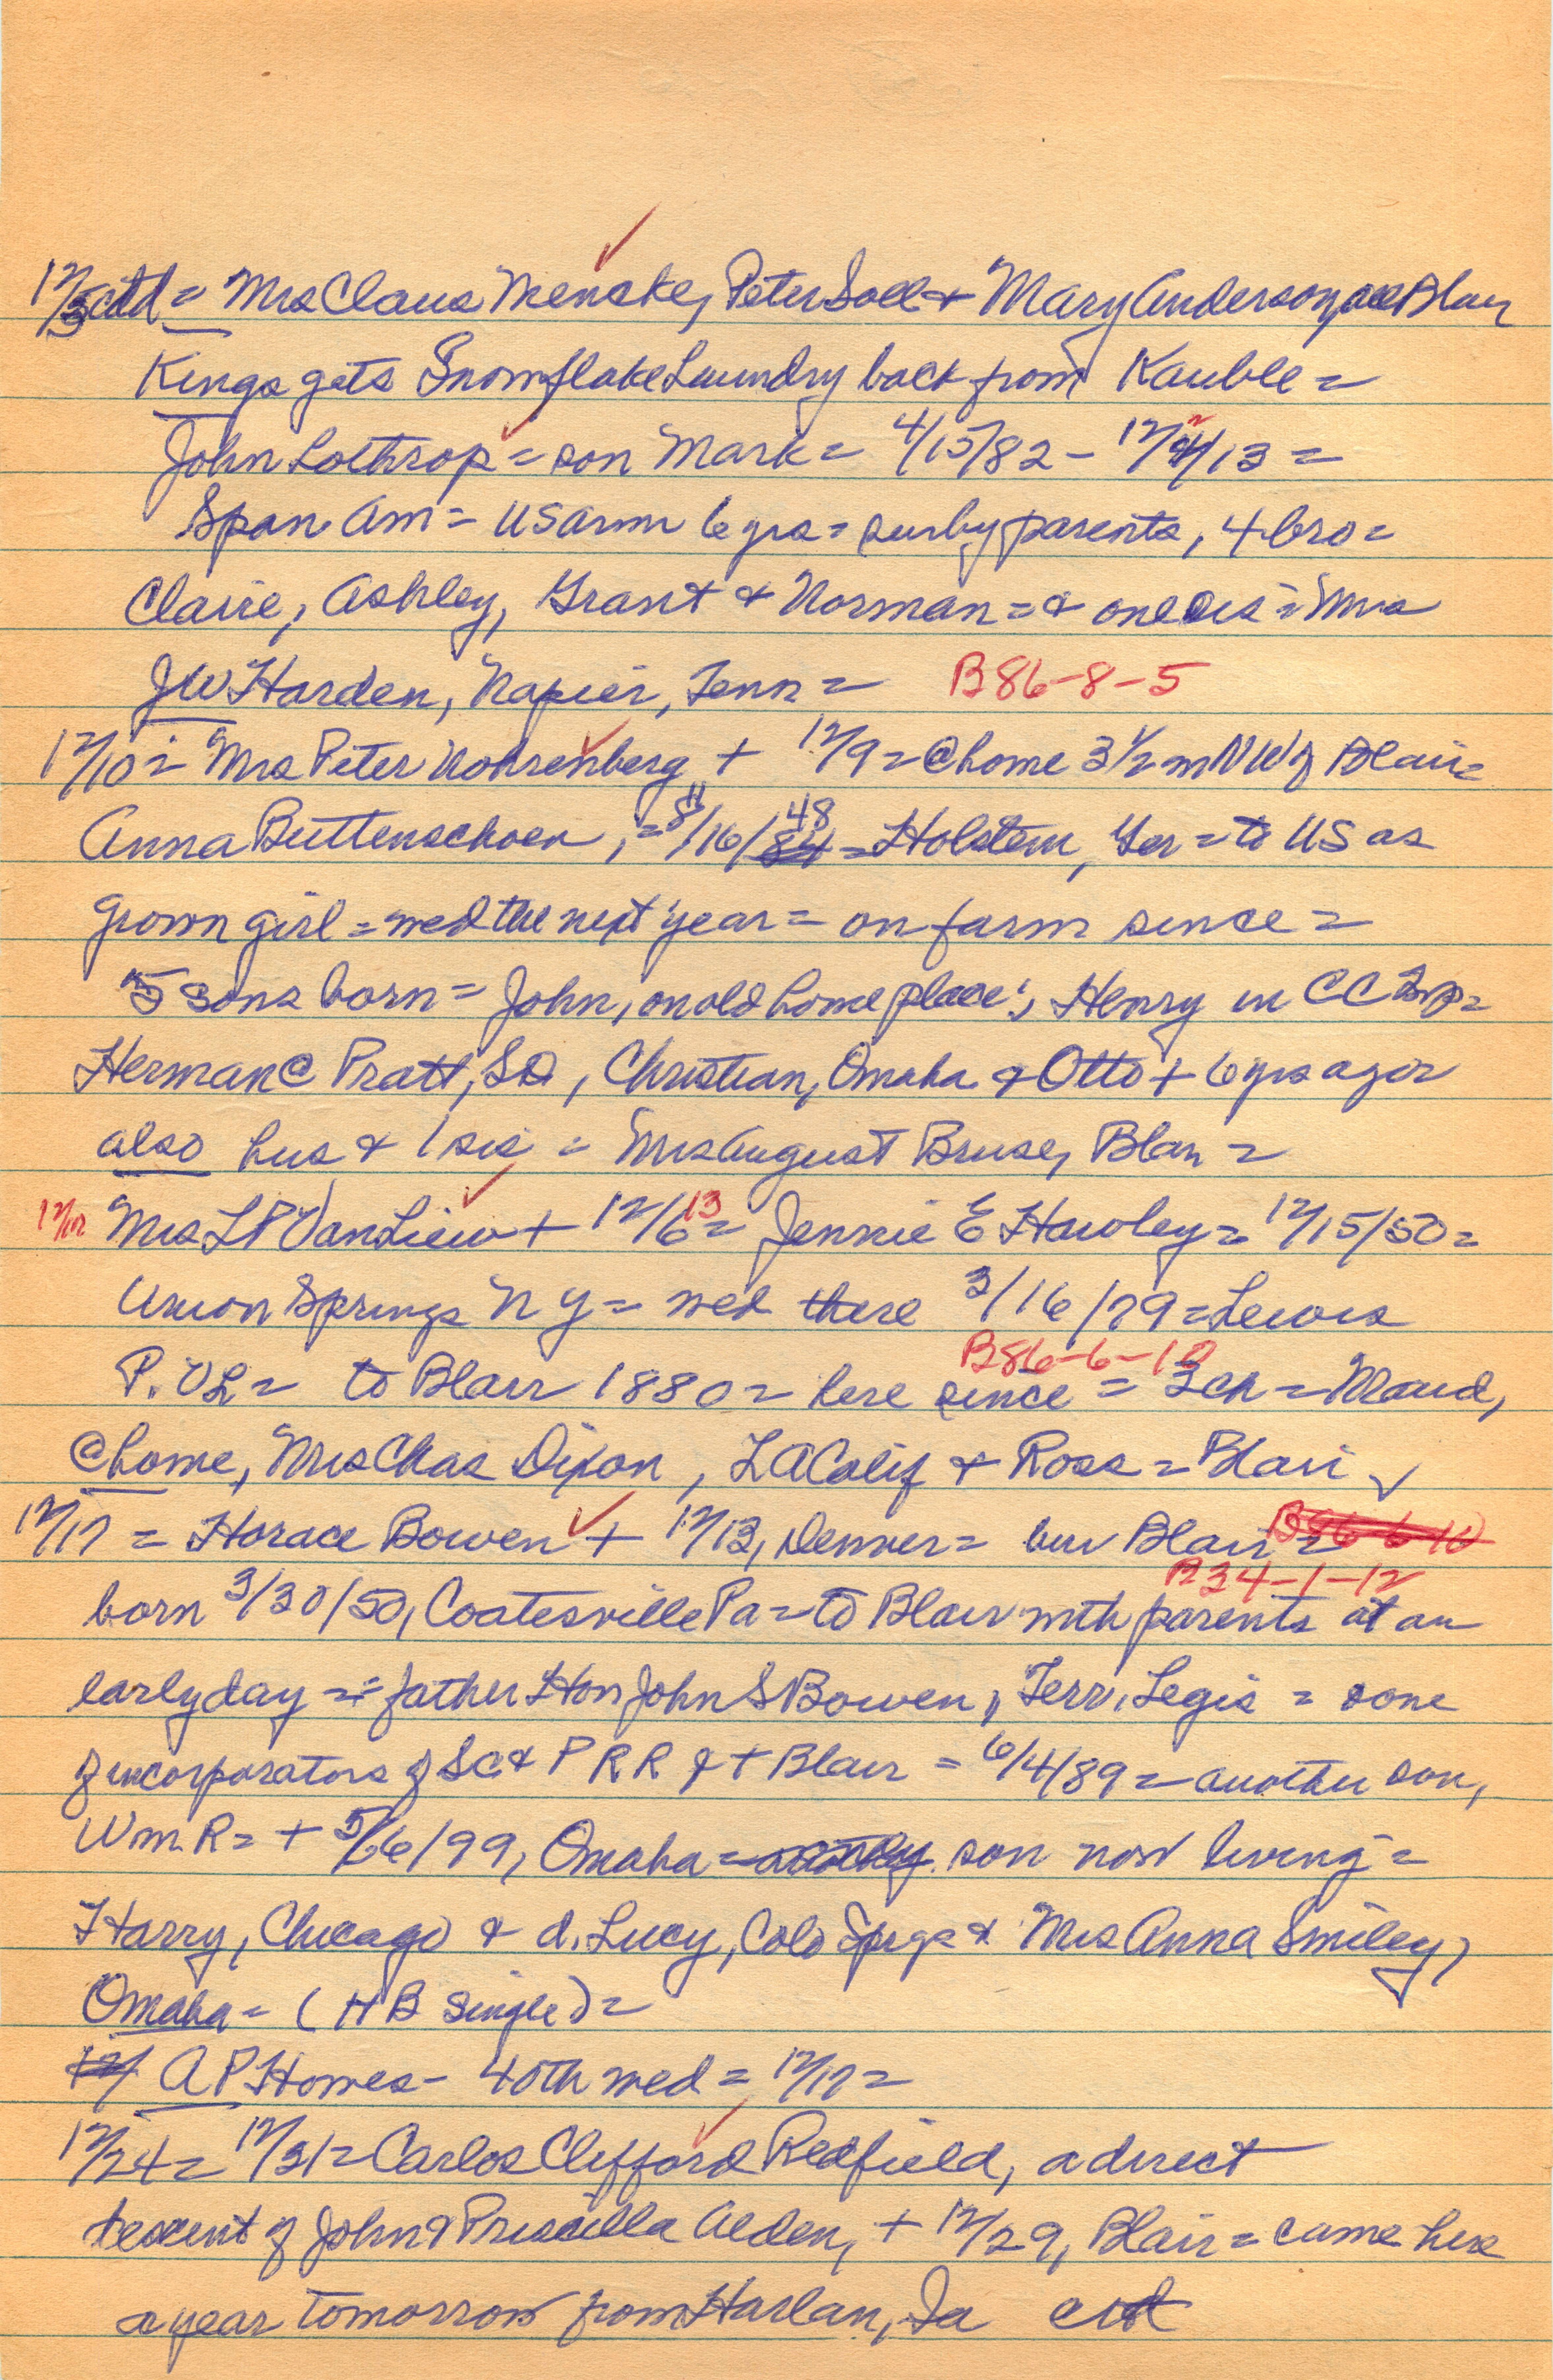 12/3 ctd = Mrs Claus Mencke, Peter Soll & Mary Anderson, all Blair
Kings gets Snowflake Laundry back from Kauble =
John Lothrop = son Mark = 4/15/82 - 12/4/13 =
Span Am = US Army 6 yrs = surby parents, 4 bro =
Claire, Ashley, Grant & Norman = & one sis = Mrs
JW Harden, Napier, Tenn = B86-8-5
12/10 = Mrs Peter Rohrenberg + 12/9 = @ home 3 1/2 m NW of Blair =
Anna Buttenschoen, = 8/16/84 48 = Holstein, Ger = to US as
grown girl = wed the next year = on farm since =
5 sons born = John, on old home place; Henry in CC Twp =
Herman @ Pratt, SD, Christian, Omaha & Otto + 6 yrs ago =
also hus & 1 sis = Mrs August Bruse, Blair =
12/10 Mrs LP Van Liew + 12/6 13 = Jennie E Hawley = 12/15/50 =
Union Springs NY = wed there 3/16/79 = Lewis
P. VL = to Blair 1880 = here since = 3 ch = Maud,
B86-6-10
@ home, Mrs Chas Dixon, LA Calif & Ross = Blair
12/17 = Horace Bowen + 12/13, Denver = bur Blair = B86-6-10
B34-1-12
born 3/30/50, Coatesville Pa = to Blair with parents at an
early day = father Hon John S Bowen, Terr. Legis = one
of incorporators of SC & P RR & + Blair = 6/4/89 = another son,
Wm. R = + 5/26/99, Omaha = son now living =
Harry, Chicago & d. Lucy, Colo Spgs & Mrs Anna Smiley,
Omaha = (HB single) =
12/ AP Howes - 40th wed = 12/17 =
12/24 = 12/31 = Carlos Clifford Redfield, a direct
descent of John & Priscilla Alden, + 12/29, Blair = came here
a year tomorrow from Harlan, Ia ctd